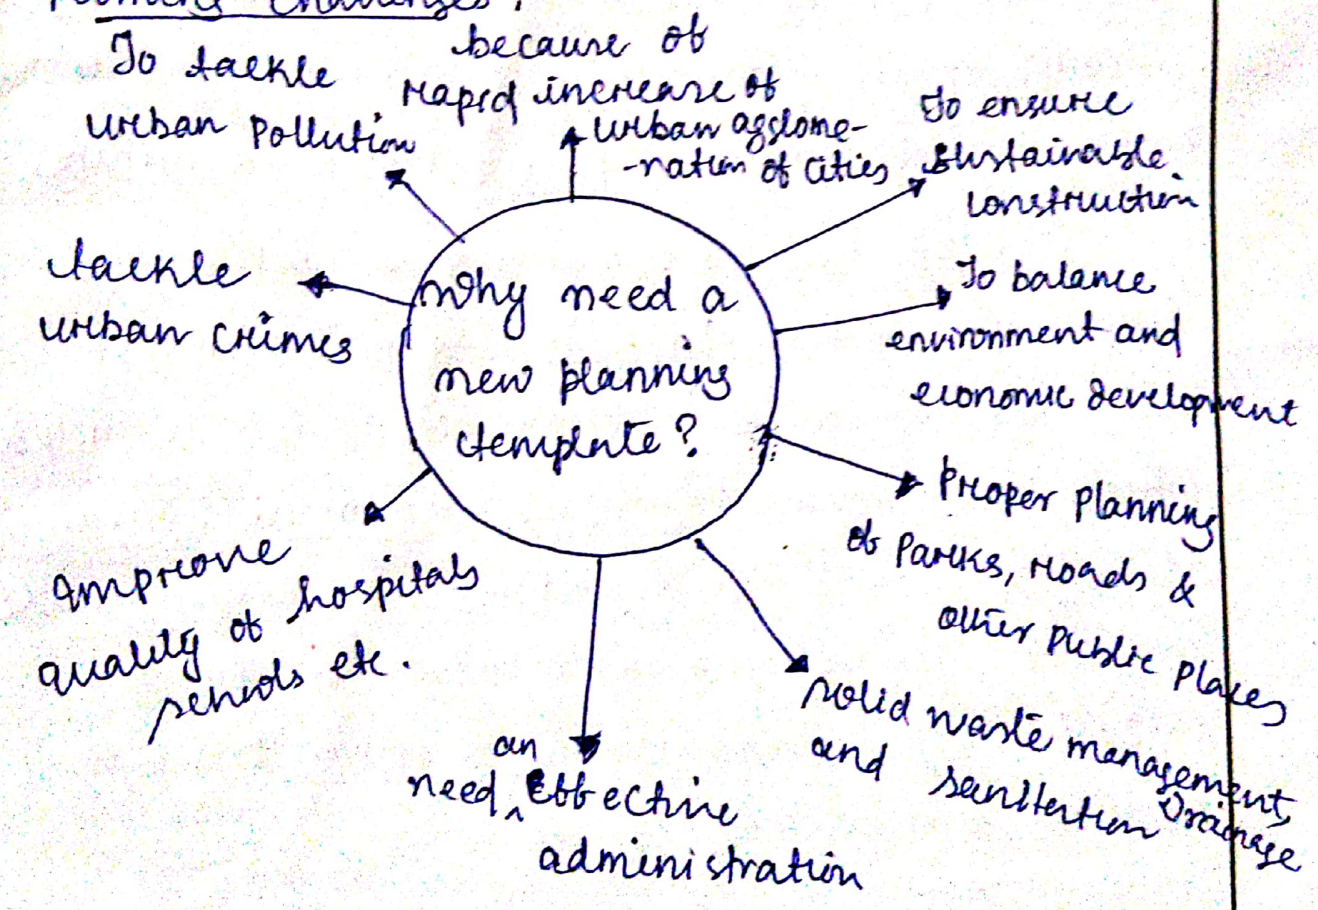 Planning Challenges :
To tackle
urban Pollution
because of
rapid increase of
urban agglome-
-ration of cities
To ensure
sustainable
construction
To balance
environment and
economic development
Proper Planning
of Parks, roads &
other Public Places
solid waste management,
and sanitation Drainage
need an Effective
administration
Improve
quality of hospitals
schools etc.
tackle
urban crimes
Why need a
new planning
template?